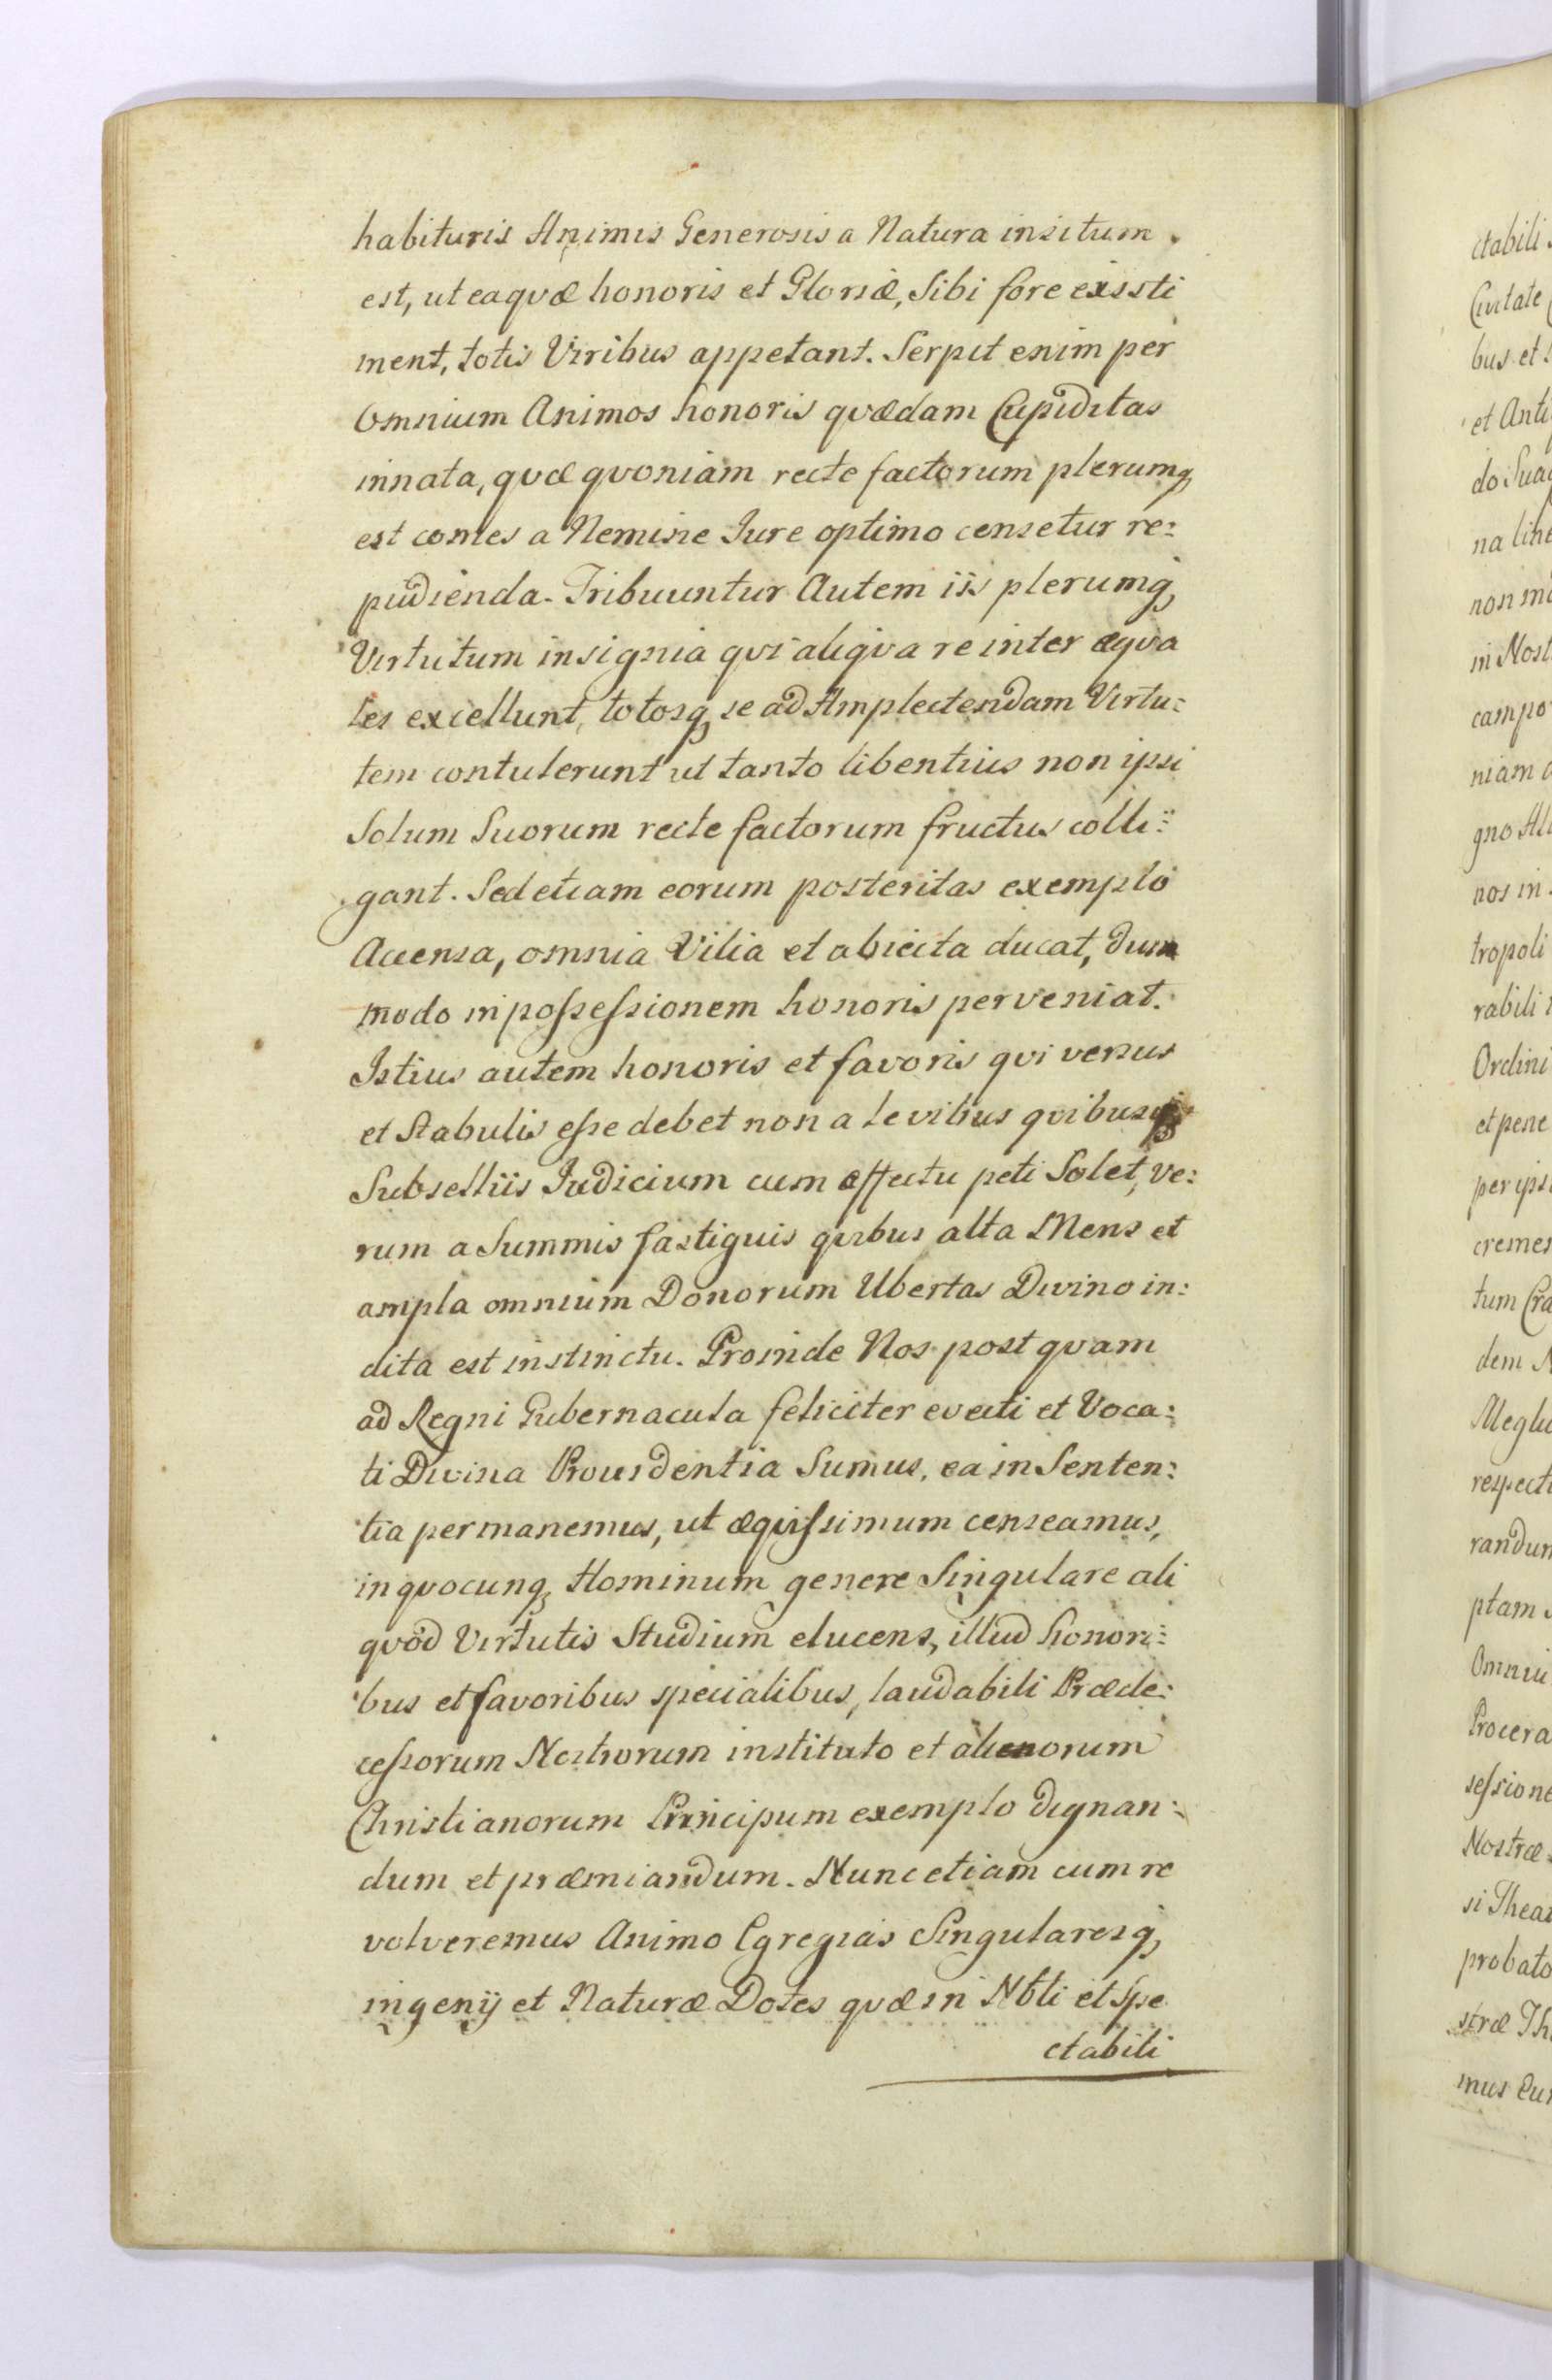 habituris Animis Generosis a Natura insitum
est, ut ea quæ honoris et Gloriæ, Sibi fore exissti
ment, totis Viribus appetant. Serpit enim per
Omnium Animos honoris quædam Cupiditas
innata, quæ quoniam recte factorum plerumq,
est comes a Nemine Jure optimo censetur re:
pudienda. Tribuuntur Autem iis plerumq,
Virtutum insignia qui aliqva re inter æqva
les excellunt, totosq, se ad Amplectendam Virtu:
tem contulerunt ut tanto libentius non ipsi
Solum Suorum recte factorum fructus colli:
gant. Sed etiam eorum posteritas exemplo
Accensa, omnia Vilia et abiecta ducat, dum
modo in possessionem honoris perveniat.
Istius autem honoris et favoris qui verus
et Stabulis esse debet non a levibus quibusq,
Subselliis Judicium cum effectu peti Solet, ve:
rum a Summis fastiguis quibus alta Mens et
ampla omnium Donorum Ubertas Divino in:
dita est instinctu. Proinde Nos post quam
ad Regni Gubernacula feliciter evecti et Voca:
ti Divina Providentia Sumus, ea in Senten:
tia permanemus, ut æquissimum censeamus,
in quocunq, Hominum genere Singulare ali
quod Virtutis Studium elucens, illud honori:
bus et favoribus specialibus, laudabili Præde:
cessorum Nostrorum instituto et alienorum
Christianorum Principum exemplo dignan:
dum et præmiandum. Nunc etiam cum re
volveremus Animo Egregias Singularesq,
ingenij et Naturæ Dotes quæ in Nbli et Spe
ctabili
ctabili
Civitate
bus et
et Anti
do Sua
na line
non
in Nost
campo
niam
gno
nos in
tropoli
rabili
Ordini
et pene
per ips
cremen
tum Cra
dem
Meglu
respect
randum
ptam
Omniu
Procera
sessione
Nostræ
si Thea
probato
stræ Th
mus Eu